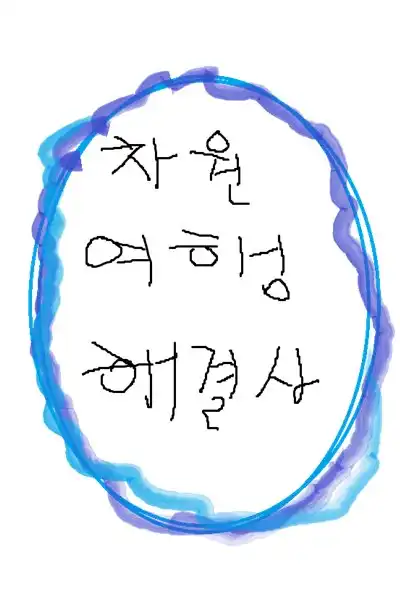 차원
여행
해결사